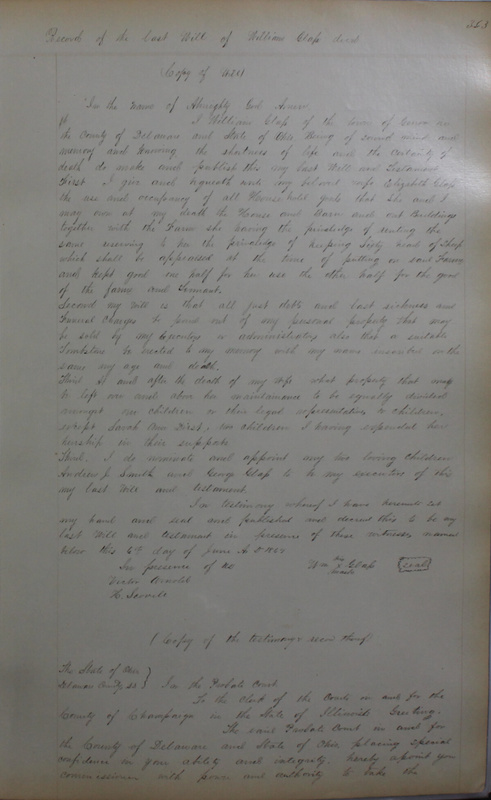 353
Record of the last Will of William Clap decd
(Copy of Will)
In the name of Almighty God Amen
I William Clap of the town of in
the County of Delaware and State of Ohio Being of sound mind and
memory and knowing the shortness of life and the certainty of
death do make and publish this my last Will and Testament
First I give and bequeath unto my beloved wife Elizabeth Clap
the use and occupancy of all Household goods that she and I
may own at my death the House and Barn and out Buildings
together with the Farm she having the privilege of renting the
same reserving to her the privilege of keeping Sixty head of Sheep
which shall be appraised at the time of putting on said Farm
and kept good one half for her use the other half for the good
of the farm and Tennant.
Second my Will is that all just debts and last sickness and
Funeral Charges be paid out of my personal property that may
be sold by my Executors or administrators also that a suitable
Tombstone be erected to my memory with my name inscribed on the
same my age and death.
Third and after the death of my wife what property that may
be left over and above her maintainance to be equally divided
amongst our children or their legal representatives or children,
except Sarah Ann children I having expended her
in their support
Third. I do nominate and appoint my two loving Children
Andrew J. Smith and George Clap to be my executors of this
my last Will and testament.
In testimony whereof I have hereunto set
my hand and seal and published and decreed this to be my
last Will and testament in presence of those witnesses named
below this 6th day of June A D
In presence of us Wm his X mark Clap (seal)
Victor Arnold
H.
(Copy of the testimony)
The State of Ohio }
Delaware County SS } In the Probate Court
To the clerk of the Courts in and for the
County of Champaign in the State of Illinois Greeting.
The said Probate Court in and for
the County of Delaware and State of Ohio, placing special
confidence in your ability and integrity hereby appoint you
commissioner with power and authority to take the